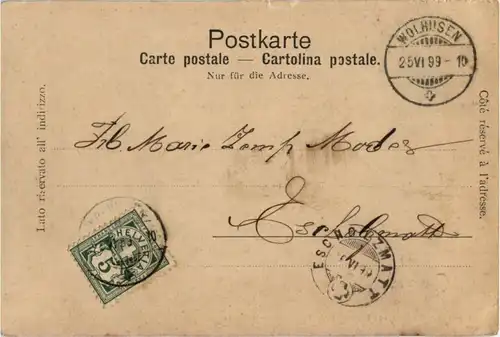 Postkarte
Carte postale — Cartolina postale.
Nur für die Adresse.
WOLHUSEN
25 VI 99 - 10
Lato riservato all' indirizzo.
Côté réservé à l'adresse.
Frl. Marie Zemp Modes
Escholzmatt
HELVETIA
5
ESCHOLZMATT
VI 99